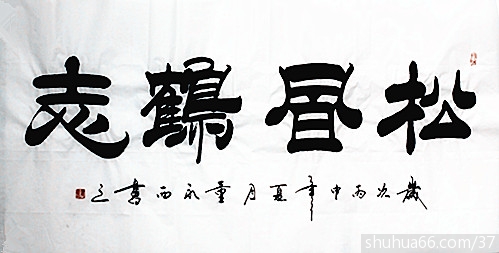 松風鶴志
歲次丙申年夏月董永西書之
shuhua66.com/37